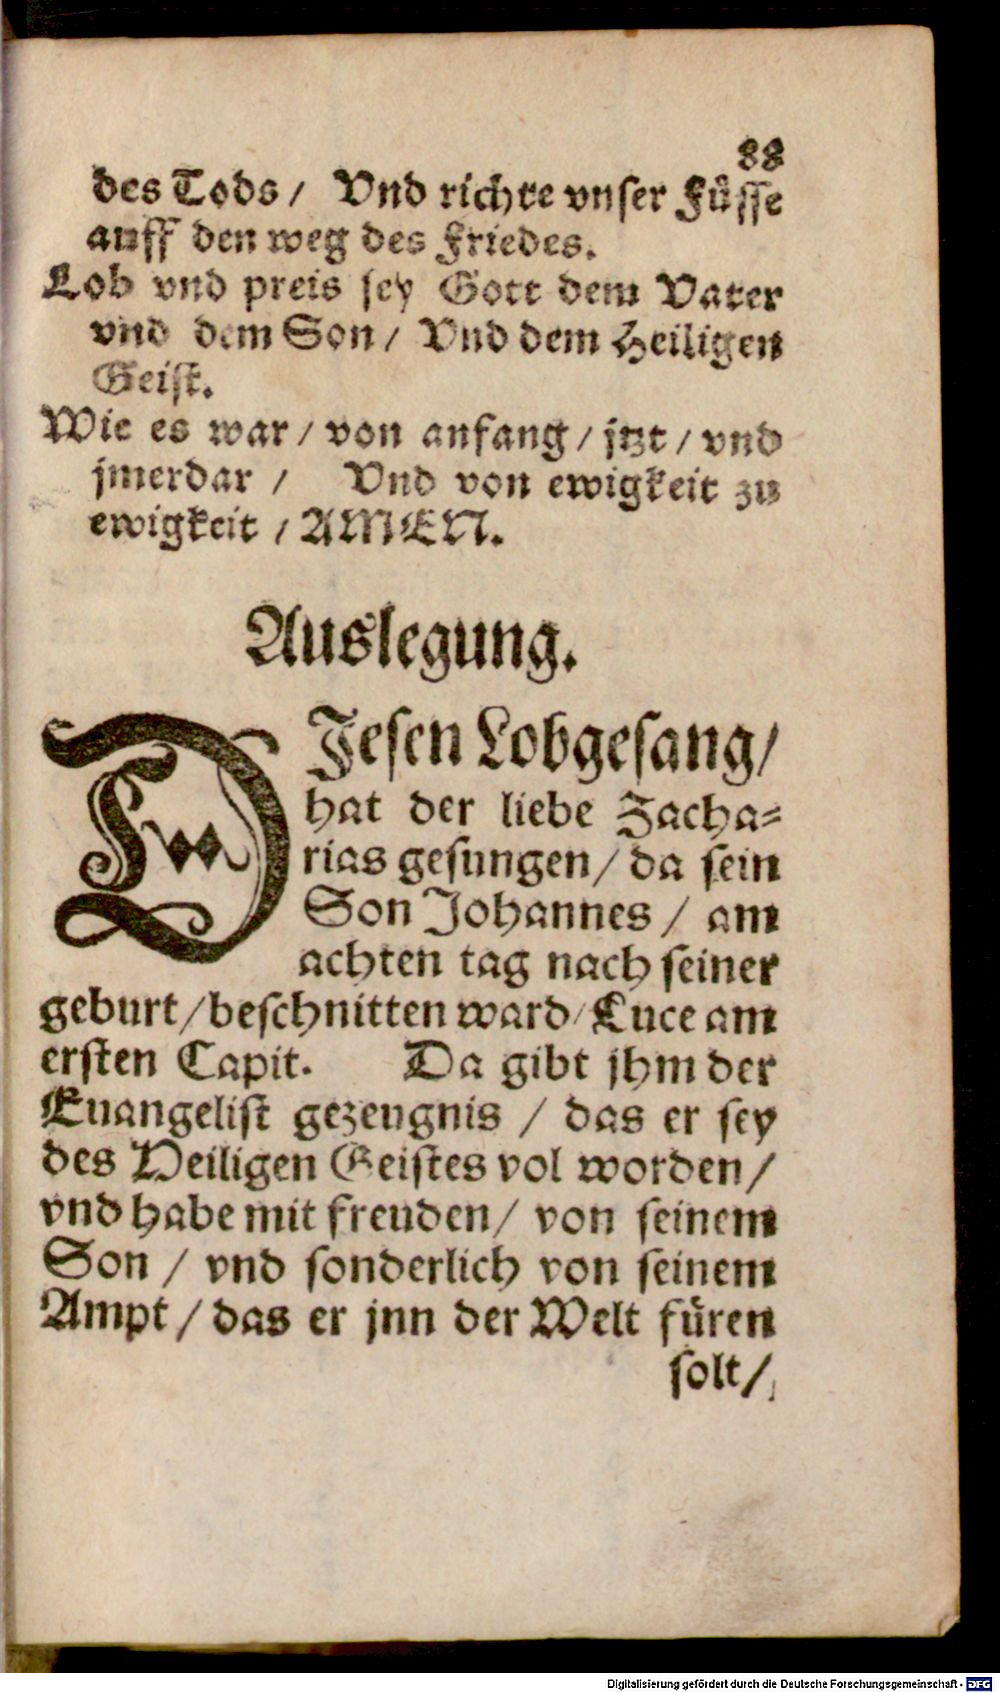 88
des Tods / Vnd richte vnser Füsse
auff den weg des Friedes.
Lob vnd preis sey Gott dem Vater
vnd dem Son / Vnd dem Heiligen
Geist.
Wie es war / von anfang / jtzt / vnd
jmerdar / Vnd von ewigkeit zu
ewigkeit / AMEN.
Auslegung.
DJesen Lobgesang /
hat der liebe Zacha-
rias gesungen / da sein
Son Johannes / am
achten tag nach seiner
geburt / beschnitten ward / Luce am
ersten Capit. Da gibt jhm der
Euangelist gezeugnis / das er sey
des Heiligen Geistes vol worden /
vnd habe mit freuden / von seinem
Son / vnd sonderlich von seinem
Ampt / das er jnn der Welt füren
solt /
Digitalisierung gefördert durch die Deutsche Forschungsgemeinschaft - DFG